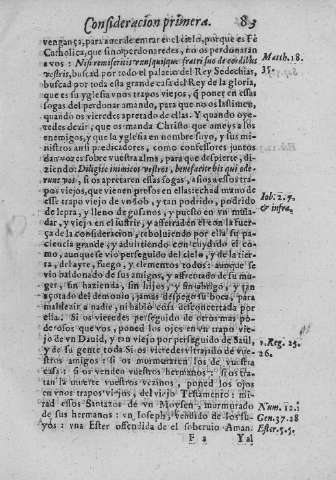 Consideracion primera. 83
vengança, para auer de entrar en el cielo, porque es Fè
Catholica, que si no perdonaredes, no os perdonaràn
a vos: Nisi remiseritis vnusquisque fratri suo de cordibus
vestris, buscad por todo el palacio del Rey Sedechias,
buscad por toda esta grande casa del Rey de la gloria,
que es su yglesia vnos trapos viejos, q̃ poner en essas
sogas del perdonar amando, para que no os lastimen,
quando os vieredes apretado de ellas. Y quando oye-
redes dezir, que os manda Christo que ameys a los
enemigos, y que la yglesia en nombre suyo, y sus mi-
nistros assi predicadores, como confessores juntos
dan vozes sobre vuestra alma, para que despierte, di-
ziendo: Diligite inimicos vestros, benefacite his qui ode-
runt vos, si os apretaren essas sogas, asios a essos tra-
pos viejos, que vienen presos en ellas: echad mano de
esse trapo viejo de vn Iob, y tan podrido, podrido
de lepra, y lleno de gusanos, y puesto en vn mula-
dar, y viejo en el sufrir, y asseraden el con la fuer-
ça de la consideracion, reboluiendo por ella su pa-
ciencia grande, y aduirtiendo con cuydado el co-
mo, aunque se vio perseguido del cielo, y de la tie-
rra, del ayre, fuego, y elementos todos: aunque se
vio baldonado de sus amigos, y afrentado de su mu-
ger, sin hazienda, sin hijos, y sin abrigo, y tan
açotado del demonio, jamas despegò su boca, para
maldezir a nadie, ni hablò cosa desconcertada por
ella. Si os vieredes perseguido de enormas po-
derosos que vos, poned los ojos en vn trapo vie-
jo de vn Dauid, y tan viejo por perseguido de Saul,
y de su gente toda. Si os vieredes vltrajado de vue-
stros amigos: si os murmuraren los de vuestra
casa: si os venden vuestros hermanos: si os tra-
tan la muerte vuestros vezinos, poned los ojos
en vnos trapos viejos, del viejo Testamento: mi-
rad essos Santazos de vn Moysen, murmurado
de sus hermanos: vn Ioseph, vendido de los su-
yos: vna Ester offendida de el soberuio Aman.
F 3 Yal
Matth. 18.
35.
Iob. 2. 7.
& infra.
1. Reg. 25.
26.
Num. 12. 1
Gen. 37. 28
Ester. 5. 5.